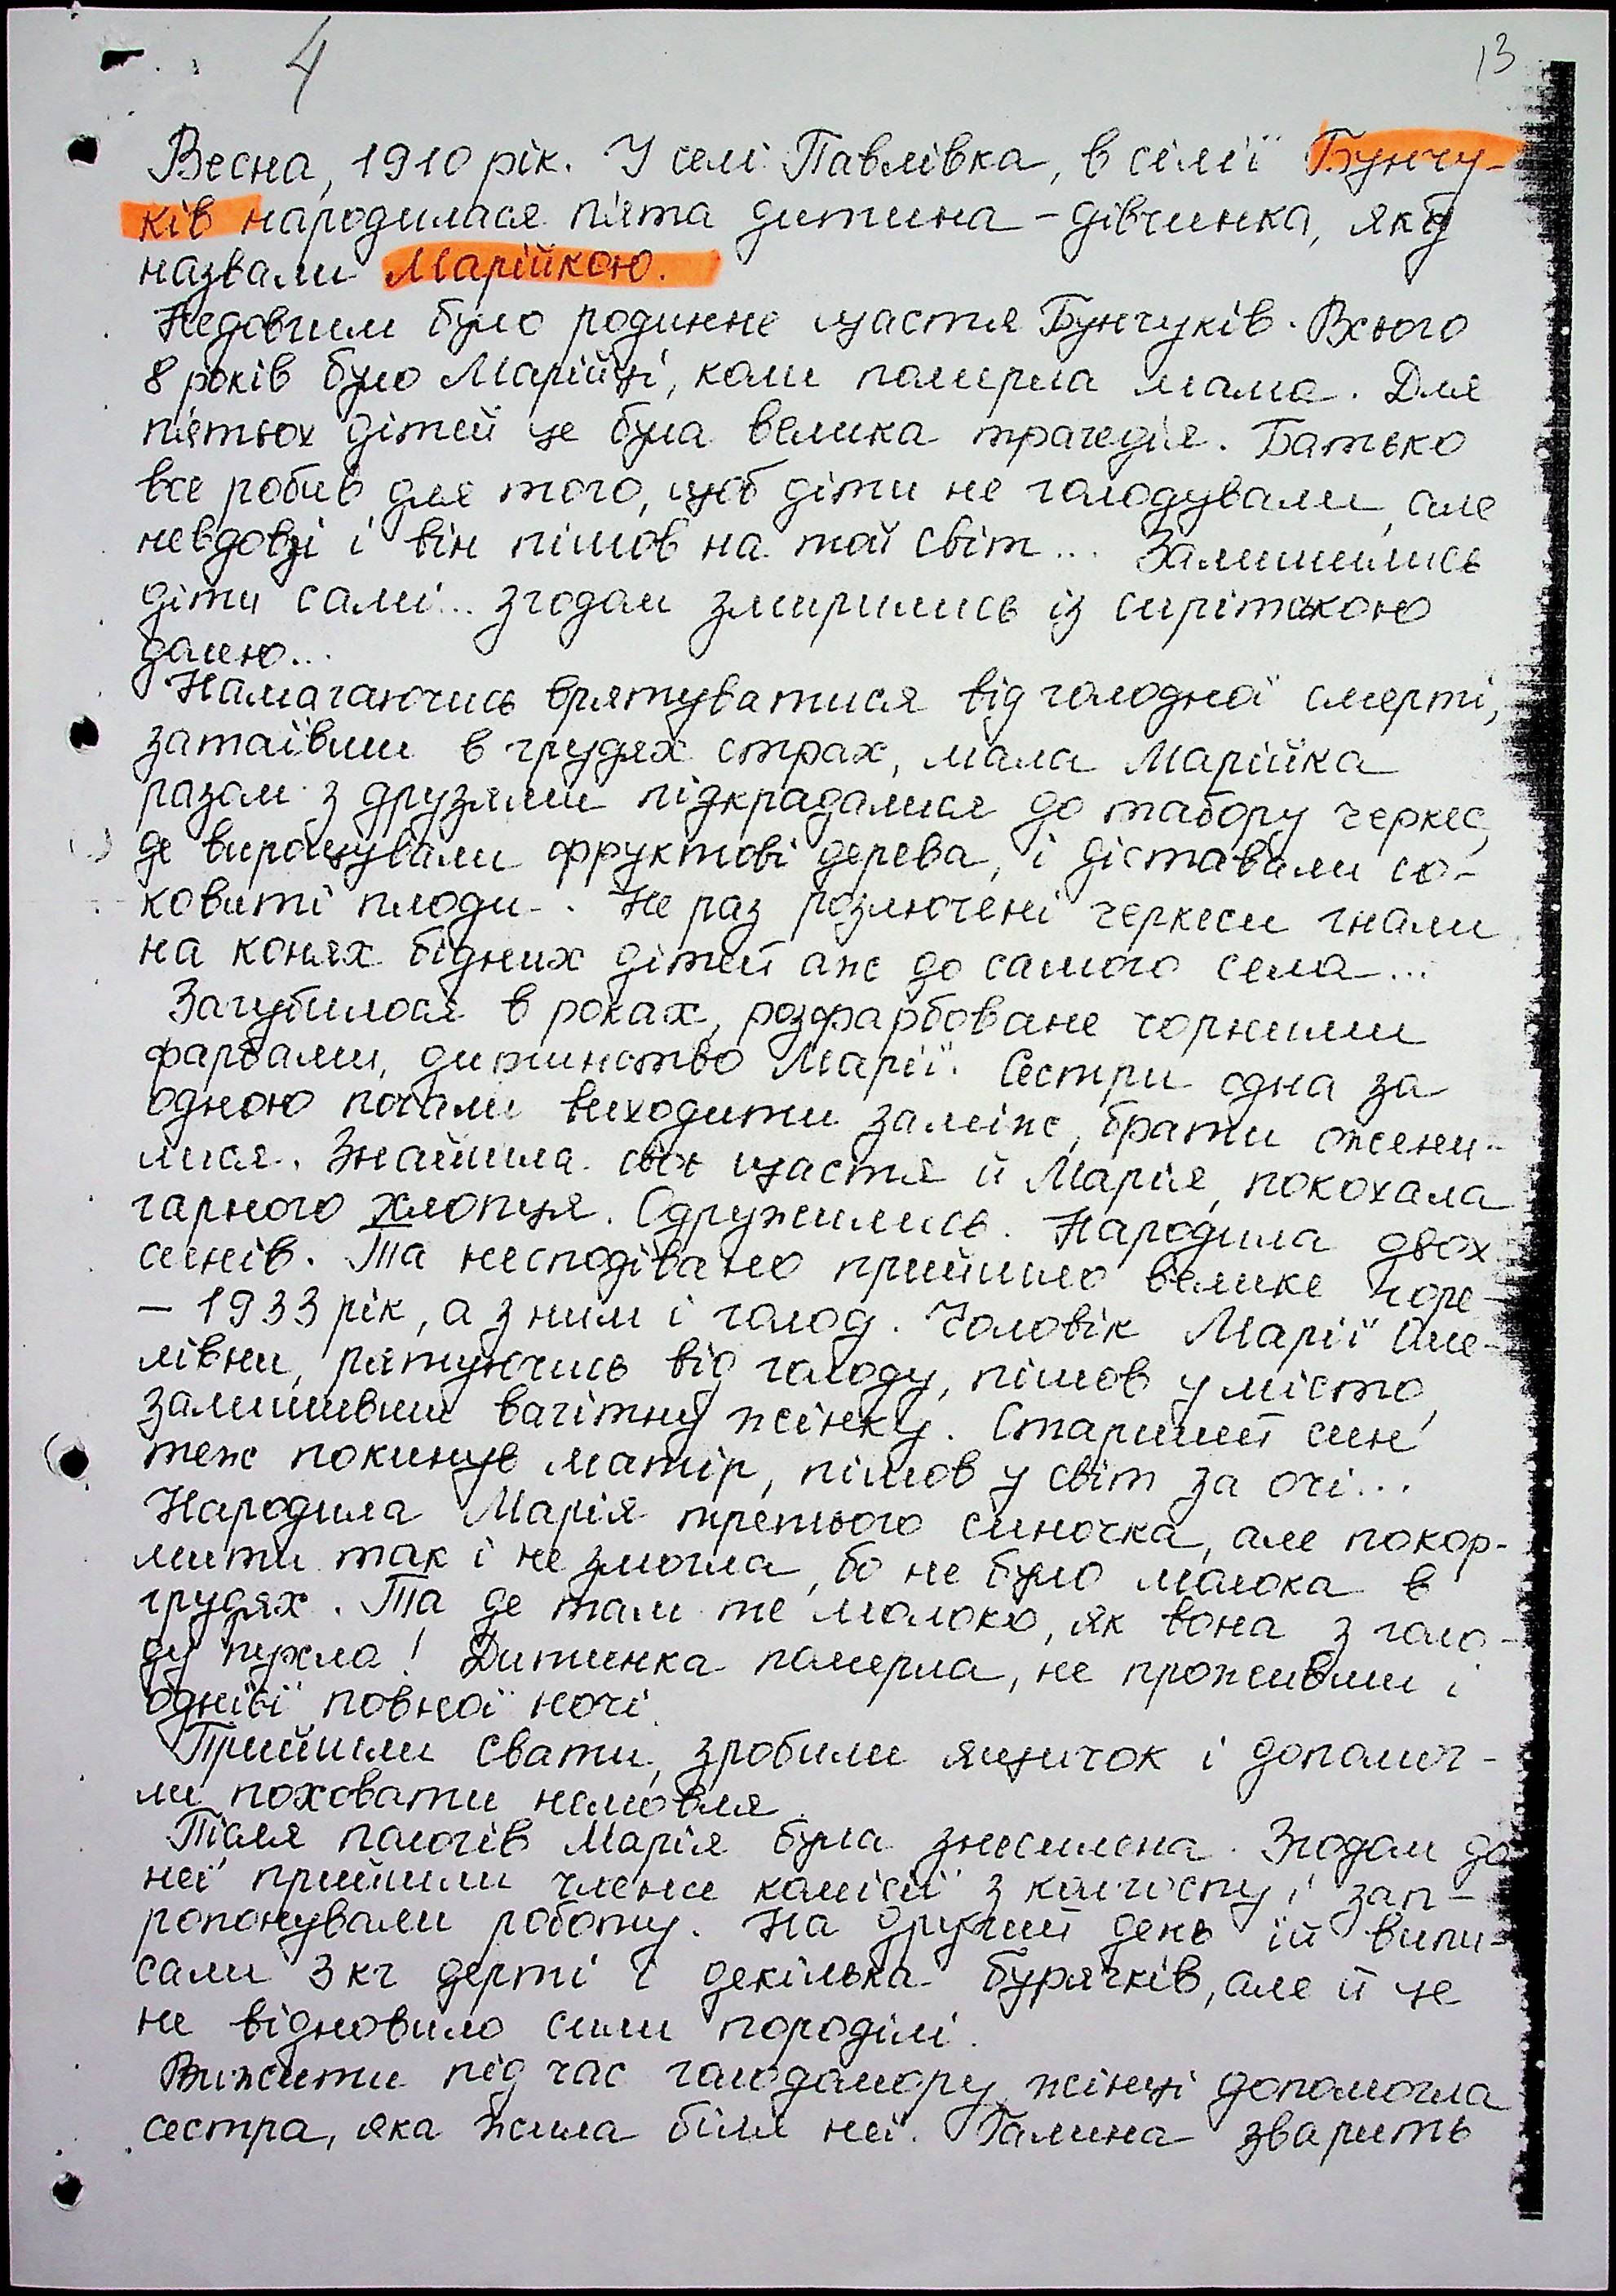 4
13
Весна, 1910 рік. У селі Павлівка, в сім'ї Бунчу-
ків народилася п'ята дитина – дівчинка, яку
назвали Марійкою.
Недовгим було родинне щастя Бунчуків. Всього
8 років було Марійці, коли померла мама. Для
п'ятьох дітей це була велика трагедія. Батько
все робив для того, щоб діти не голодували, але
невдовзі і він пішов на той світ... Залишились
діти самі... Згодом змирились із сирітською
долею...
Намагаючись врятуватися від голодної смерті,
затаївши в грудях страх, мала Марійка
разом з друзями підкрадалися до табору черкес,
де вирощували фруктові дерева, і діставали со-
ковиті плоди. Не раз розлючені черкеси гнали
на конях бідних дітей аж до самого села...
Загубилося в роках, розфарбоване чорними
фарбами, дитинство Марії. Сестри одна за
одною почали виходити заміж, брати жени-
лися. Знайшла своє щастя й Марія, покохала
гарного хлопця. Одружились. Народила двох
синів. Та несподівано прийшло велике горе –
– 1933 рік, а з ним і голод. Чоловік Марії Оме-
лівни, рятуючись від голоду, пішов у місто,
залишивши вагітну жінку. Старший син
теж покинув матір, пішов у світ за очі...
Народила Марія третього синочка, але покор-
мити так і не змогла, бо не було молока в
грудях. Та де там те молоко, як вона з голо-
ду пухла! Дитинка померла, не проживши і
однієї повної ночі.
Прийшли свати, зробили ящичок і допомог-
ли поховати немовля.
Після пологів Марія була знесилена. Згодом до
неї прийшли члени комісії з колгоспу і зап-
ропонували роботу. На другий день їй випи-
сали 3 кг дерті і декілька бурячків, але й це
не відновило сили породілі.
Вижити під час голодомору жінці допомогла
сестра, яка жила біля неї. Галина зварить